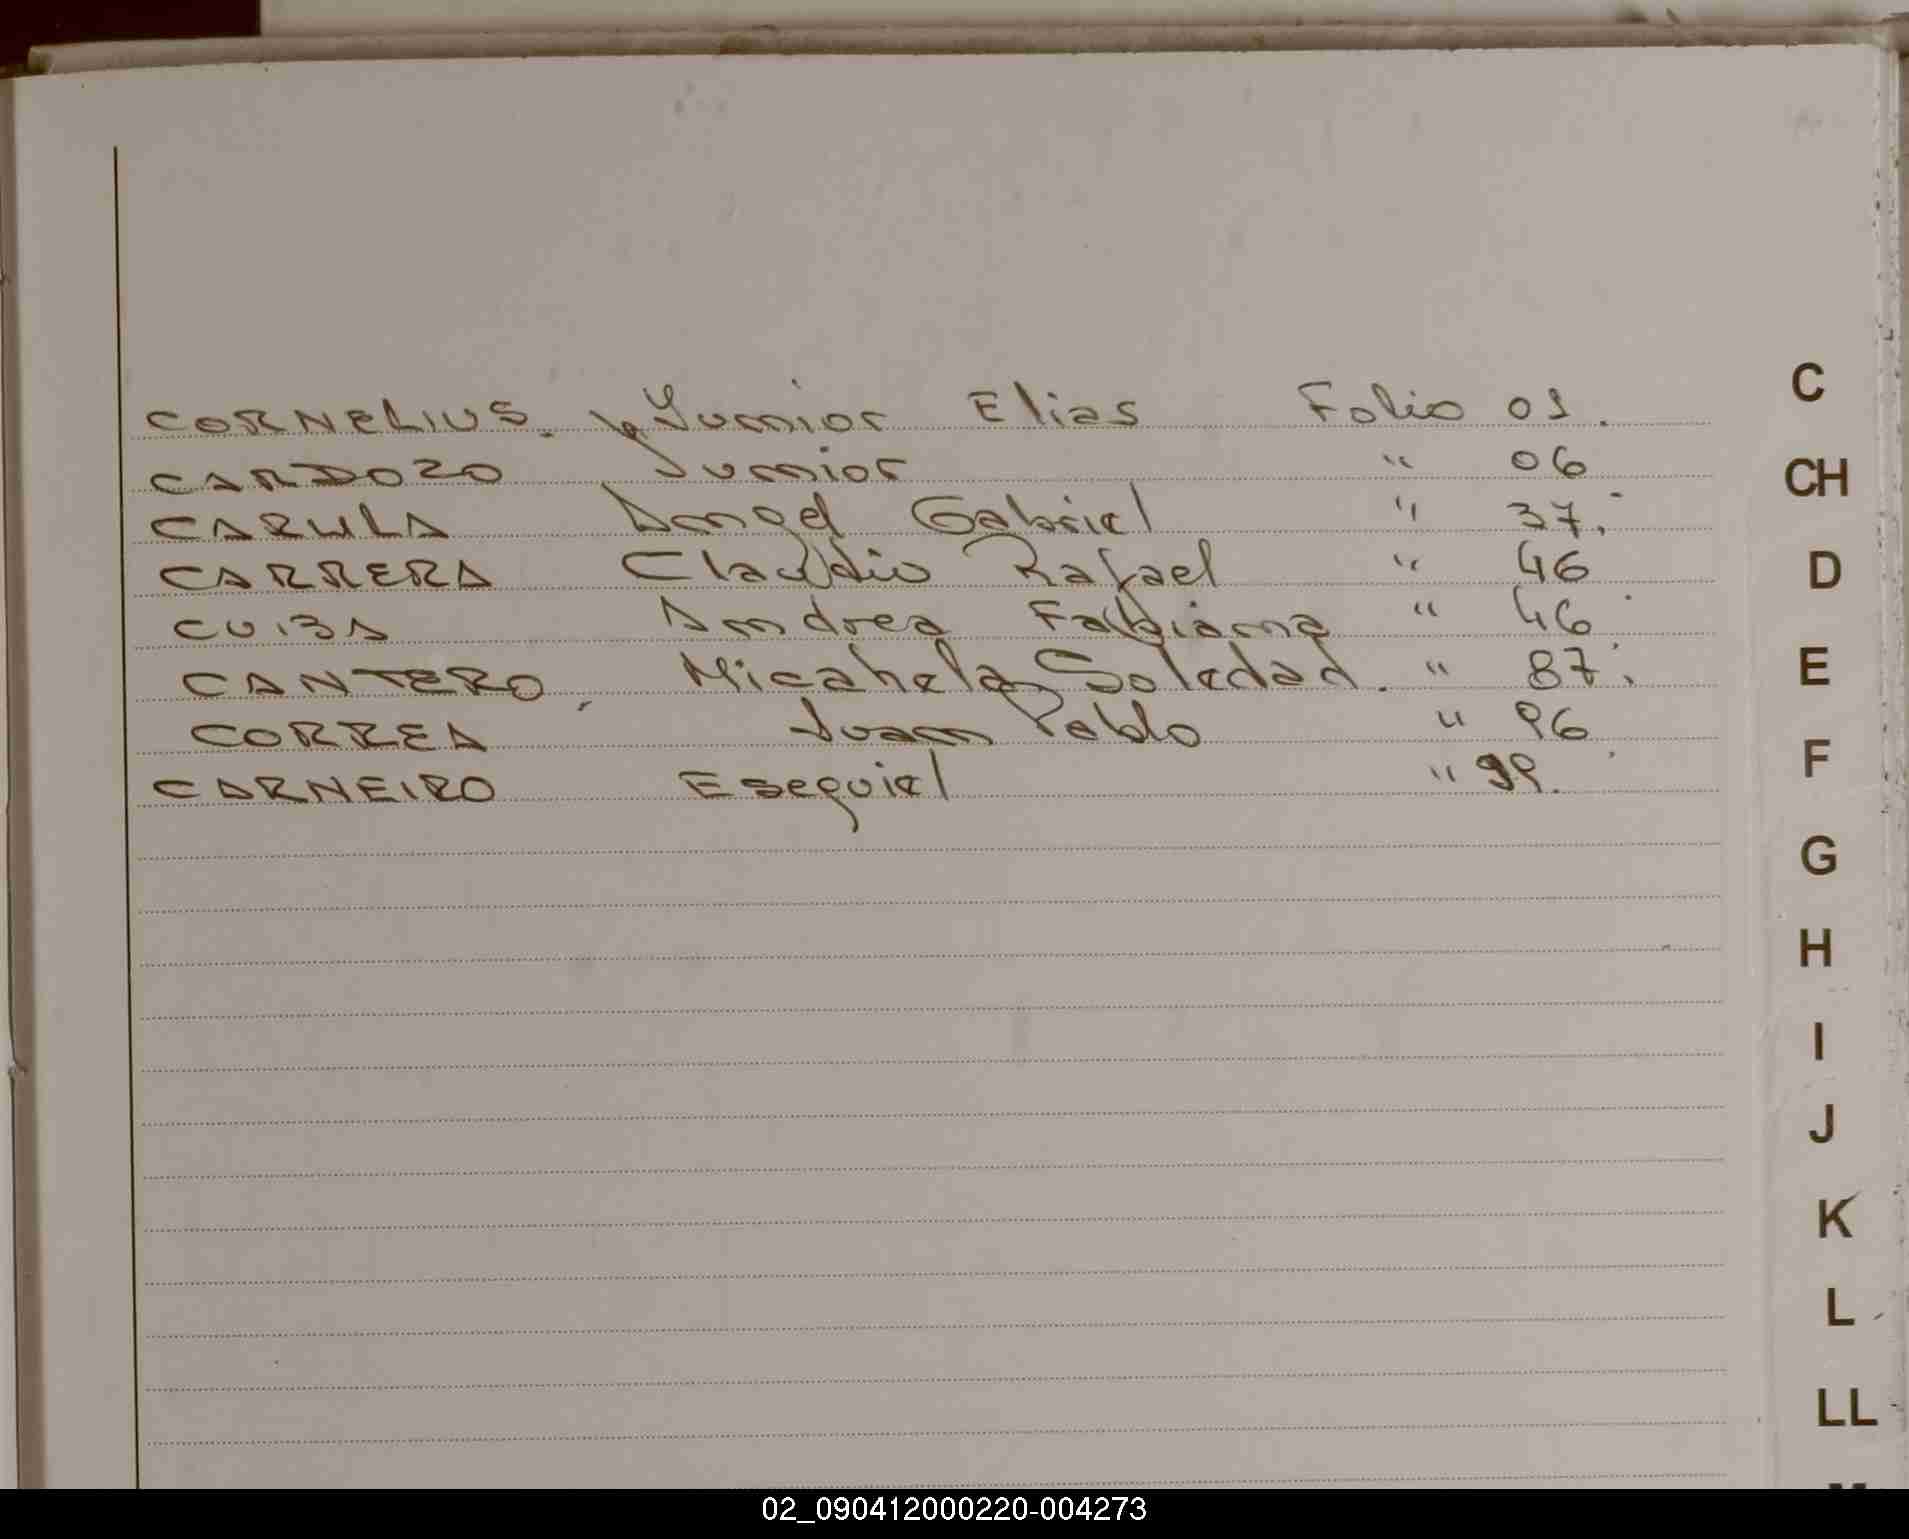 CORNELIUS. Yunior Elias Folio 01.
CARDOZO Junior " 06
CARULA Angel Gabriel " 37.
CARRERA Claudio Rafael " 46
Andrea Fabiana " 46
CANTERO, Micahela Soledad. " 87.
CORREA Juan Pablo " 96
CARNEIRO Esequiel " 99.
C
CH
D
E
F
G
H
I
J
K
L
LL
02_090412000220-004273